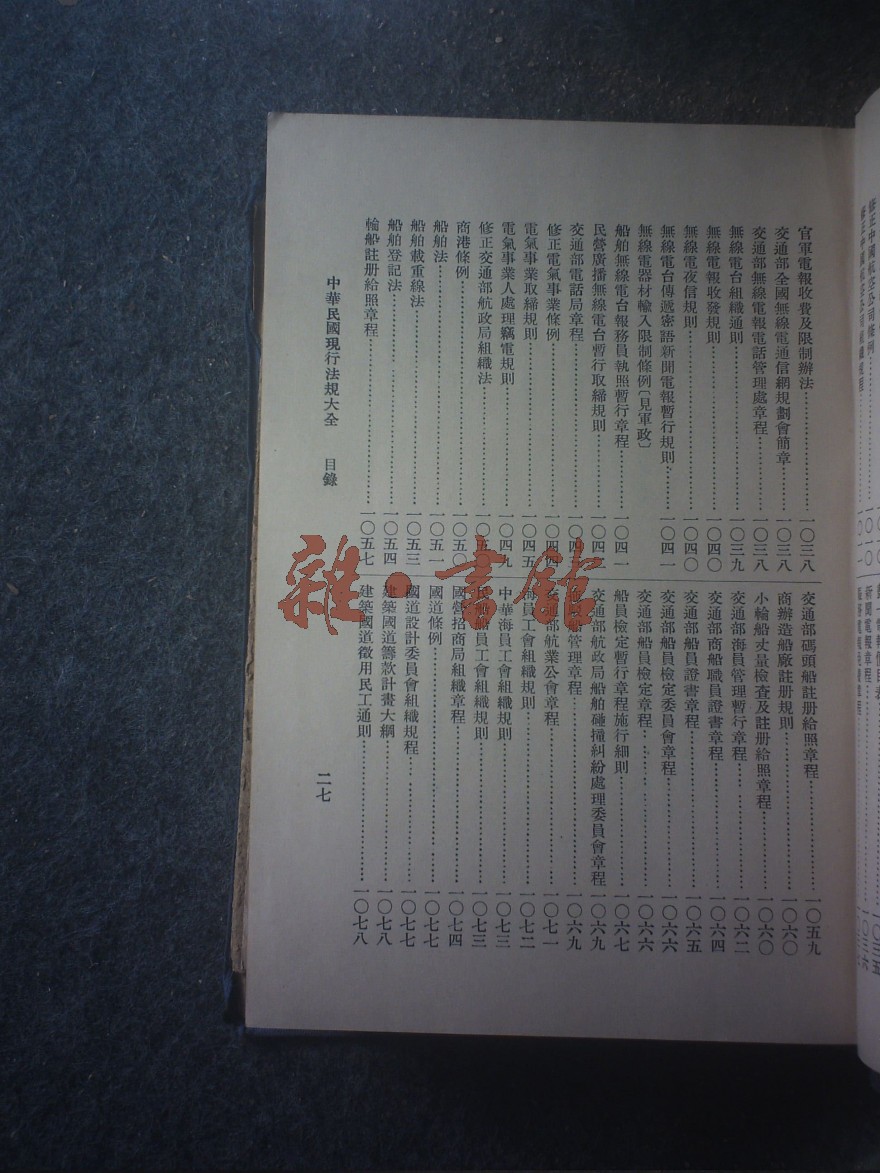 修正中國航空公司條例
新聞電報章程
官軍電報收費及限制辦法……一〇三八
交通部全國無線電通信網規劃會簡章……一〇三八
交通部無線電報電話管理處章程……一〇三八
無線電台組織通則……一〇三九
無線電報收發規則……一〇四〇
無線電夜信規則……一〇四〇
無線電台傳遞密語新聞電報暫行規則……一〇四一
無線電器材輸入限制條例〔見軍政〕
船舶無線電台報務員執照暫行章程……一〇四一
民營廣播無線電台暫行取締規則……一〇四二
交通部電話局章程……一〇四
修正電氣事業條例……一〇四四
電氣事業取締規則……一〇四五
電氣事業人處理竊電規則……一〇四九
修正交通部航政局組織法……一〇五
商港條例……一〇五〇
船舶法……一〇五一
船舶載重線法……一〇五三
船舶登記法……一〇五四
輪船註册給照章程……一〇五七
交通部碼頭船註册給照章程……一〇五九
商辦造船廠註册規則……一〇六〇
小輪船丈量檢查及註册給照章程……一〇六〇
交通部海員管理暫行章程……一〇六二
交通部商船職員證書章程……一〇六四
交通部船員證書章程……一〇六五
交通部船員檢定委員會章程……一〇六六
交通部船員檢定章程……一〇六六
船員檢定暫行章程施行細則……一〇六七
交通部航政局船舶碰撞糾紛處理委員會章程……一〇六九
船管理章程……一〇六九
交通部航業公會章程……一〇七一
海員工會組織規則……一〇七二
中華海員工會組織規則……一〇七三
民船船員工會組織規則……一〇七三
國營招商局組織章程……一〇七四
國道條例……一〇七七
國道設計委員會組織規程……一〇七七
建築國道籌款計畫大綱……一〇七八
建築國道徵用民工通則……一〇七八
中華民國現行法規大全　目錄
二七
雜·書館